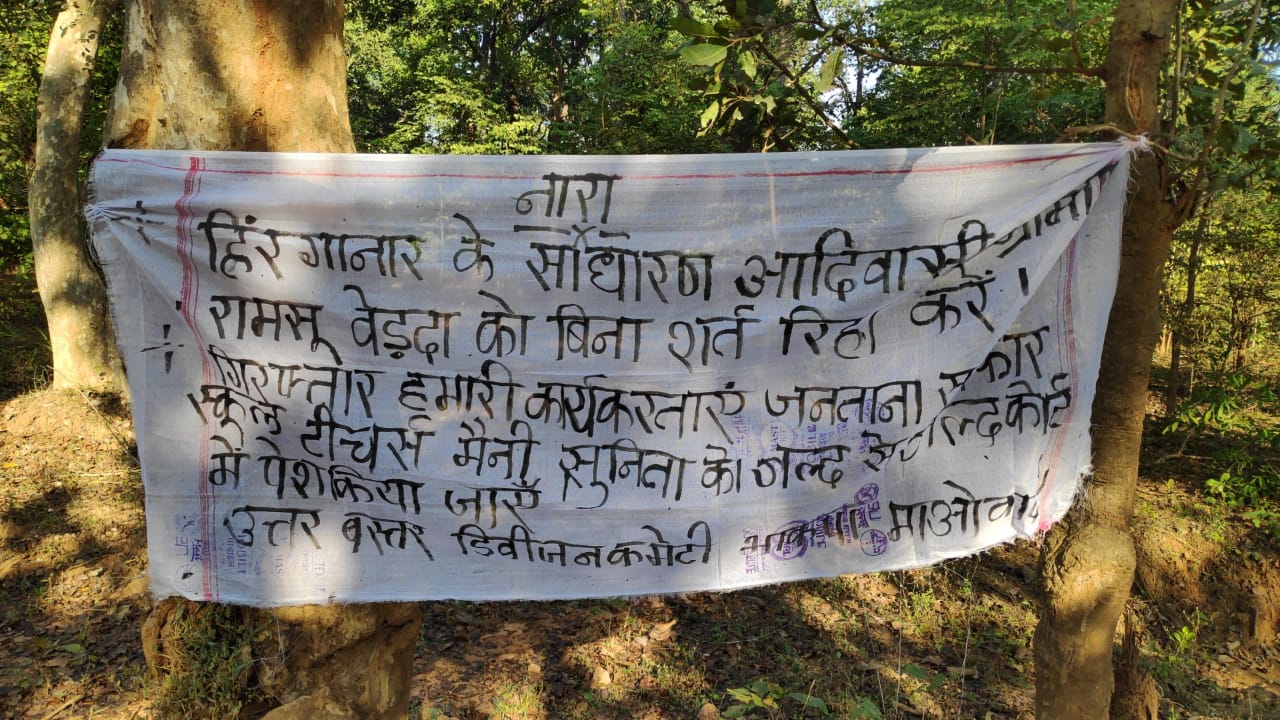 नारा
हिंरगानार के साधारण आदिवासी ग्रामी
रामसू वेड़दा को बिना शर्त रिहा करें ।
गिरफ्तार हमारी कार्यकरताएं जनताना सरकार
स्कूल टीचर्स मैनी सुनिता को जल्द से जल्द कोर्ट
में पेश किया जाएं
उत्तर बस्तर डिवीजन कमेटी भाकपा माओवादी